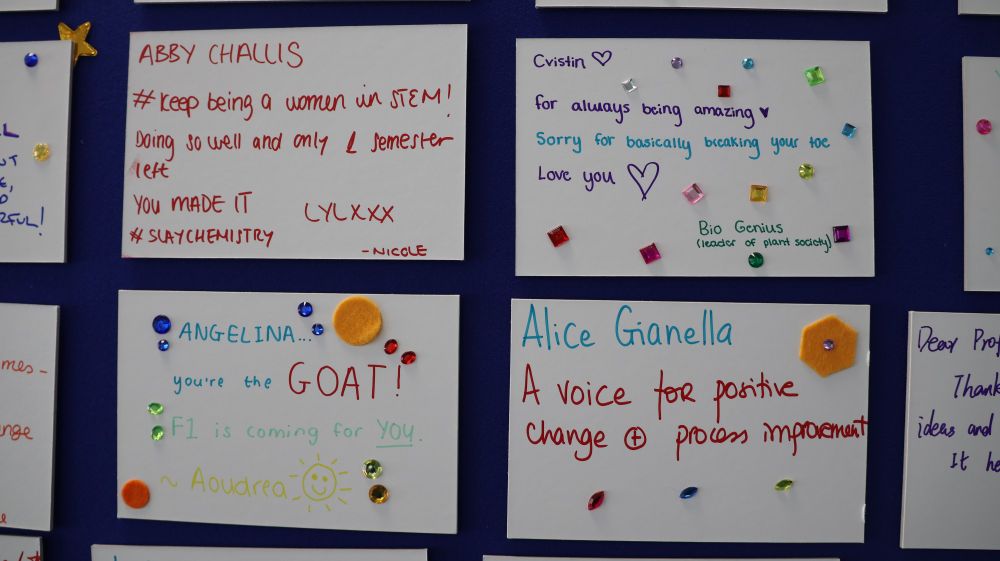 ABBY CHALLIS
#Keep being a women in STEM!
Doing so well and only 1 semester
left
YOU MADE IT
LYLXXX
#SLAYCHEMISTRY
-NICOLE
Cristin ♡
for always being amazing ♥
Sorry for basically breaking your toe
Love you ♡
Bio Genius
(leader of plant society)
ANGELINA...
you're the GOAT!
F1 is coming for YOU.
~ Aoudrea
Alice Gianella
A voice for positive
Change ⊕ process improvement
Dear Prof
Thank
ideas and
It he